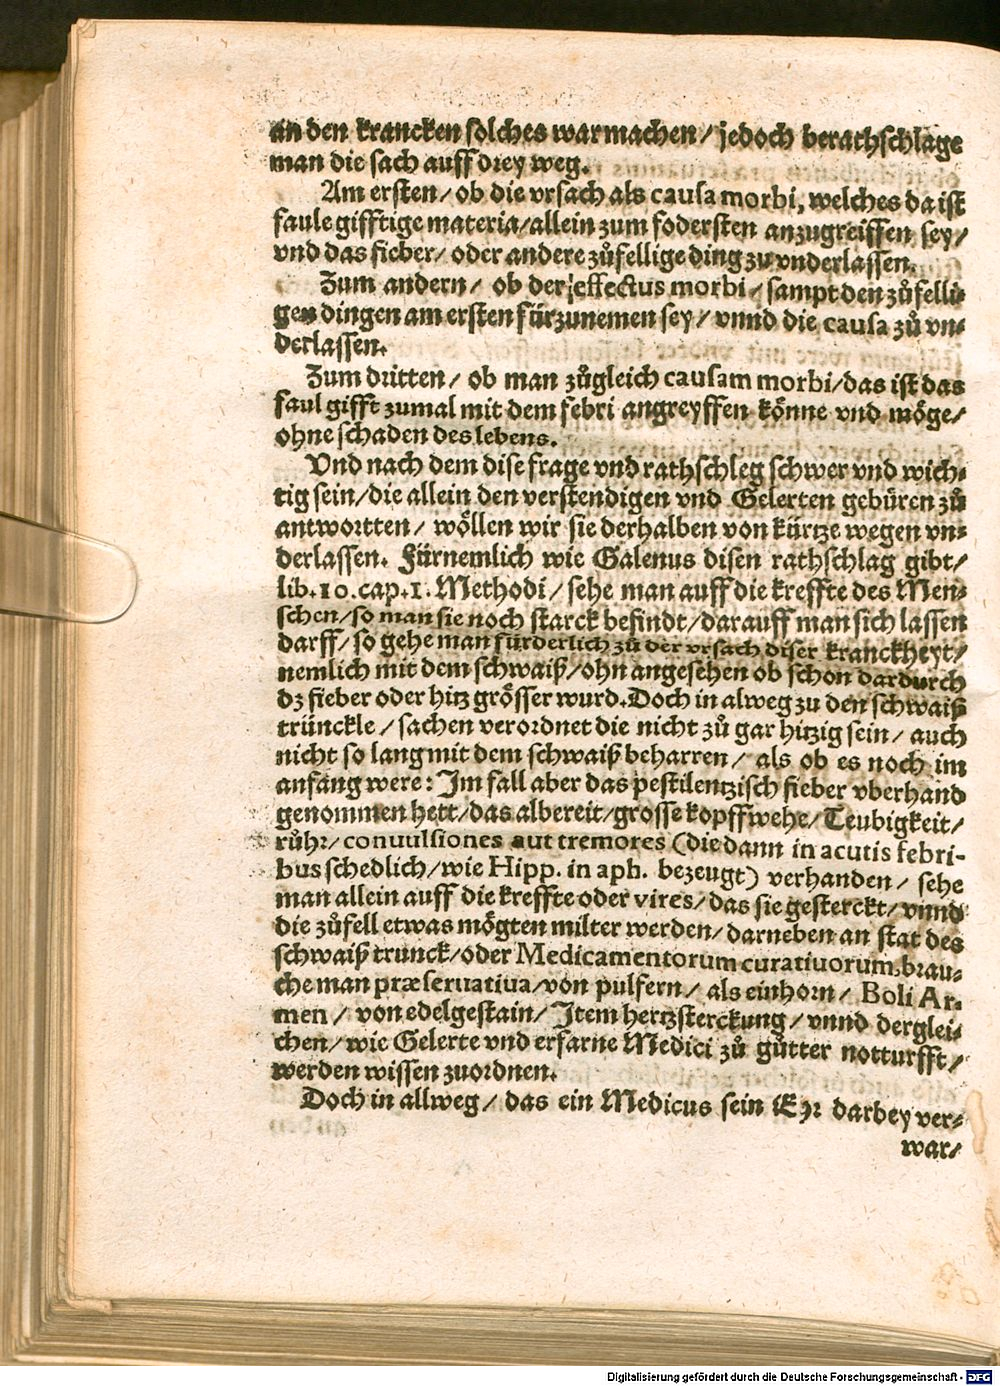 an den krancken solches war machen / jedoch berathschlage
man die sach auff drey weg.
Am ersten / ob die vrsach als causa morbi, welches da ist
faule gifftige materia / allein zum fodersten anzugreiffen sey /
vnd das fieber / oder andere zůfellige ding zu vnderlassen.
Zum andern / ob der effectus morbi / sampt den zůfelli-
gen dingen am ersten fürzunemen sey / vnnd die causa zů vn-
derlassen.
Zum dritten / ob man zůgleich causam morbi / das ist das
faul gifft zumal mit dem febri angreyffen könne vnd möge /
ohne schaden des lebens.
Vnd nach dem dise frage vnd rathschleg schwer vnd wich-
tig sein / die allein den verstendigen vnd Gelerten gebüren zů
antwortten / wöllen wir sie derhalben von kürtze wegen vn-
derlassen. Fürnemlich wie Galenus disen rathschlag gibt /
lib. 10. cap. 1. Methodi / sehe man auff die kreffte des Men-
schen / so man sie noch starck befindt / darauff man sich lassen
darff / so gehe man fürderlich zů der vrsach diser kranckheyt /
nemlich mit dem schwaiß / ohn angesehen ob schon dardurch
dz fieber oder hitz grösser wurd. Doch in alweg zu den schwaiß
trünckle / sachen verordnet die nicht zů gar hitzig sein / auch
nicht so lang mit dem schwaiß beharren / als ob es noch im
anfang were: Im fall aber das pestilentzisch fieber vberhand
genommen hett / das albereit / grosse kopffwehe / Teubigkeit /
růhr / conuulsiones aut tremores (die dann in acutis febri-
bus schedlich / wie Hipp. in aph. bezeugt) verhanden / sehe
man allein auff die kreffte oder vires / das sie gesterckt / vnnd
die zůfell etwas mögten milter werden / darneben an stat des
schwaiß trunck / oder Medicamentorum curatiuorum, brau-
che man præseruatiua / von pulfern / als einhorn / Boli Ar-
men / von edelgestain / Item hertzsterckung / vnnd derglei-
chen / wie Gelerte vnd erfarne Medici zů gůtter notturfft /
werden wissen zuordnen.
Doch in allweg / das ein Medicus sein Ehr darbey ver-
war /
Digitalisierung gefördert durch die Deutsche Forschungsgemeinschaft - DFG